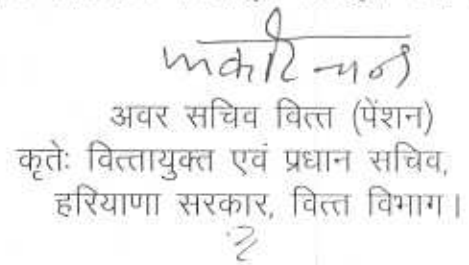 अवर सचिव वित्त (पेंशन)
कृतेः वित्तायुक्त एवं प्रधान सचिव,
हरियाणा सरकार, वित्त विभाग।